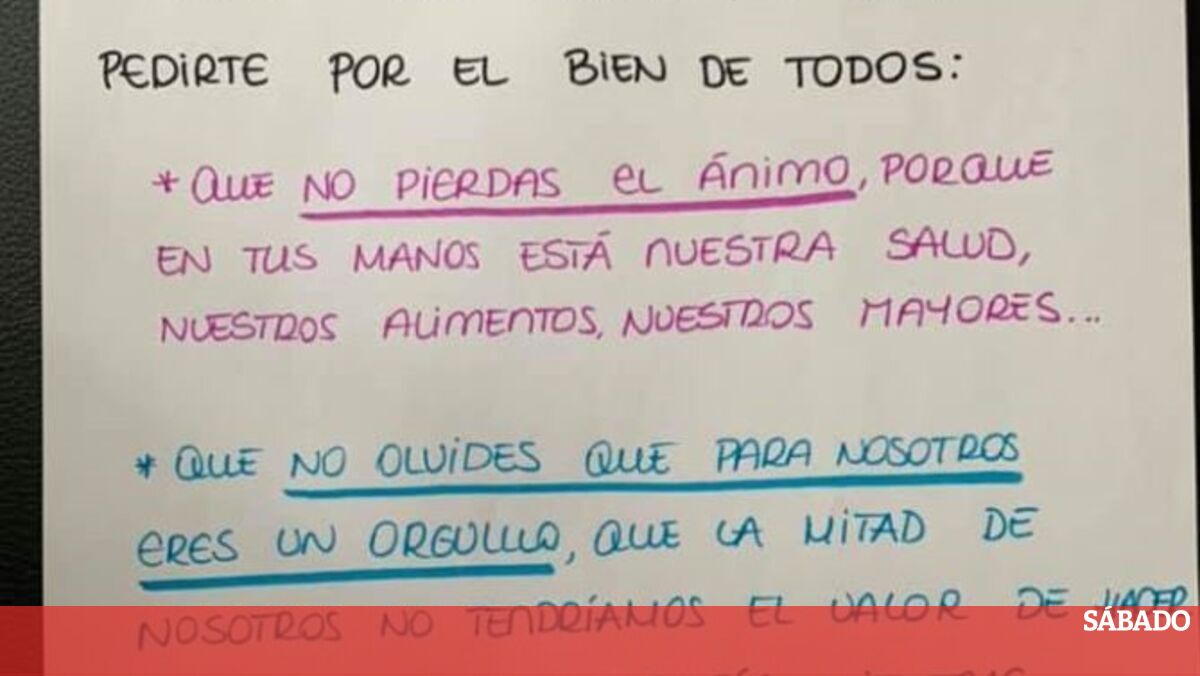 PEDIRTE POR EL BIEN DE TODOS:
* QUE NO PIERDAS EL ÁNIMO, PORQUE
EN TUS MANOS ESTÁ NUESTRA SALUD,
NUESTROS ALIMENTOS, NUESTROS MAYORES...
* QUE NO OLVIDES QUE PARA NOSOTROS
ERES UN ORGULLO, QUE LA MITAD DE
NOSOTROS NO TENDRÍAMOS EL VALOR DE HACER
SÁBADO